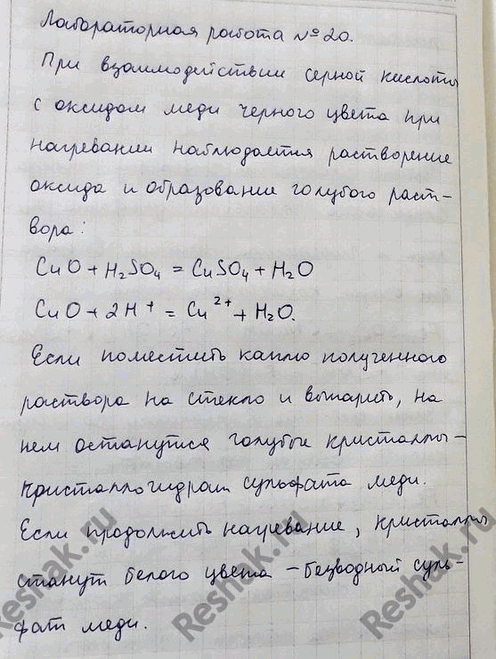 Лабораторная работа №20.
При взаимодействии серной кислоты
с оксидом меди черного цвета при
нагревании наблюдается растворение
оксида и образование голубого раст-
вора:
CuO + H₂SO₄ = CuSO₄ + H₂O
CuO + 2H⁺ = Cu²⁺ + H₂O.
Если поместить каплю полученного
раствора на стекло и выпарить, на
нем останутся голубые кристаллы -
кристаллогидрат сульфата меди.
Если продолжить нагревание, кристаллы
станут белого цвета - безводный суль-
фат меди.
Reshak.ru
Reshak.ru
Reshak.ru